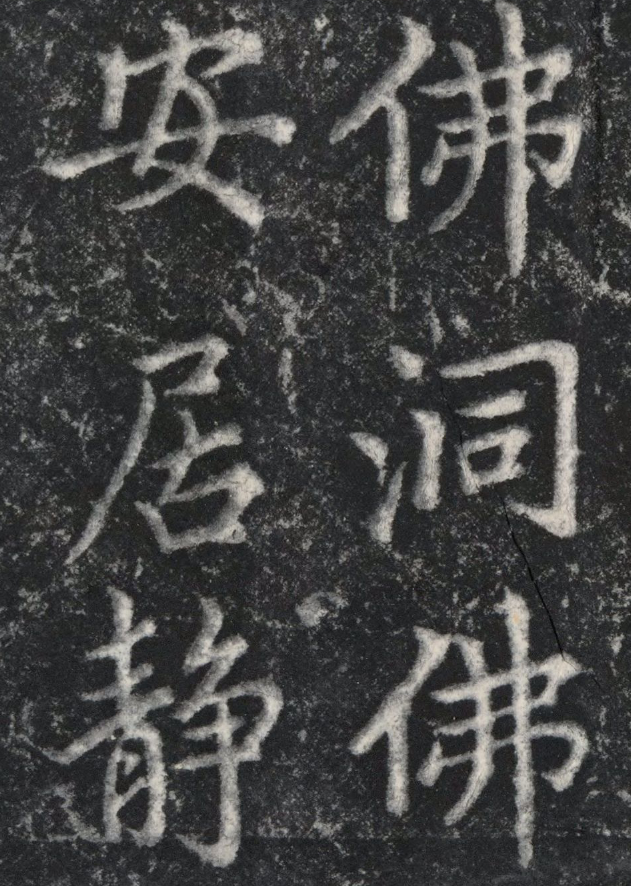 佛洞佛
安居静